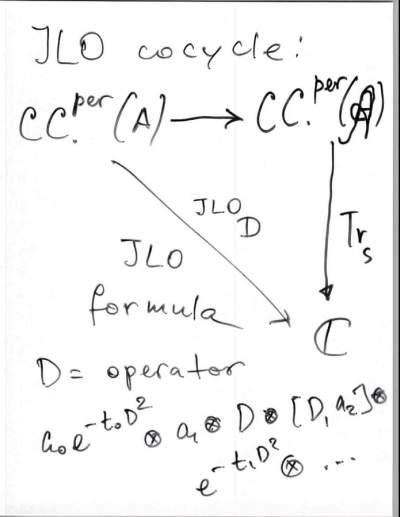 JLO cocycle:
CC.^per (A) → CC.^per (𝒜)
JLO_D
Tr_s
JLO
formula
ℂ
D = operator
a₀e^{-t₀D²} ⊗ a₁ ⊗ D ⊗ [D, a₂] ⊗
e^{-t₁D²} ⊗ ...